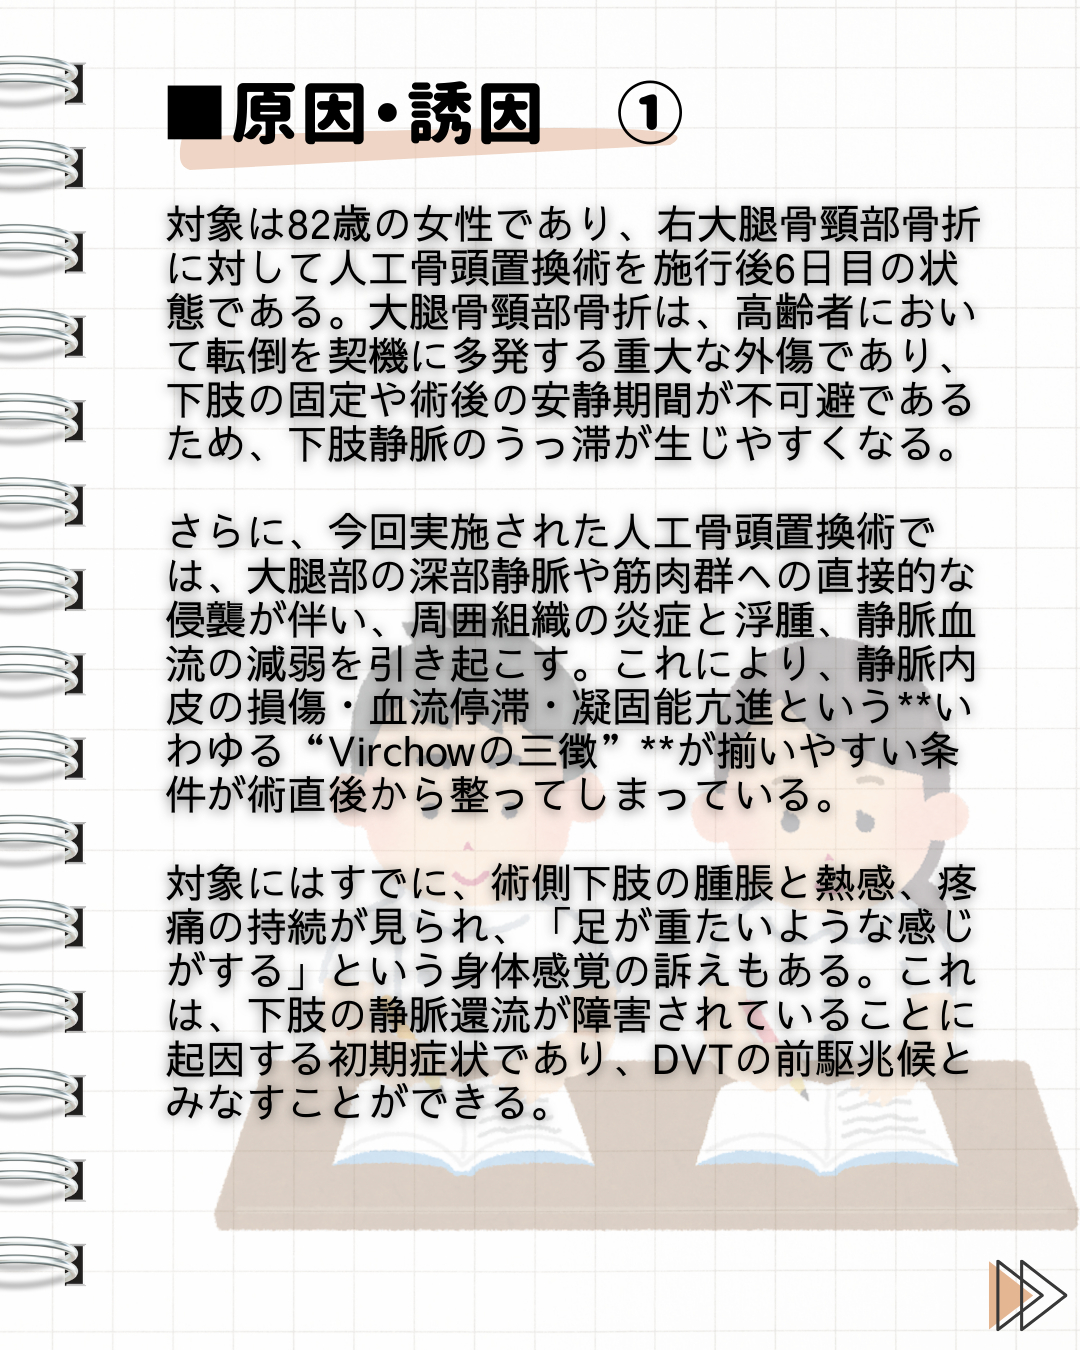 ■原因・誘因 ①
対象は82歳の女性であり、右大腿骨頸部骨折
に対して人工骨頭置換術を施行後6日目の状
態である。大腿骨頸部骨折は、高齢者におい
て転倒を契機に多発する重大な外傷であり、
下肢の固定や術後の安静期間が不可避である
ため、下肢静脈のうっ滞が生じやすくなる。
さらに、今回実施された人工骨頭置換術で
は、大腿部の深部静脈や筋肉群への直接的な
侵襲が伴い、周囲組織の炎症と浮腫、静脈血
流の減弱を引き起こす。これにより、静脈内
皮の損傷・血流停滞・凝固能亢進という**い
わゆる“Virchowの三徴”**が揃いやすい条
件が術直後から整ってしまっている。
対象にはすでに、術側下肢の腫脹と熱感、疼
痛の持続が見られ、「足が重たいような感じ
がする」という身体感覚の訴えもある。これ
は、下肢の静脈還流が障害されていることに
起因する初期症状であり、DVTの前駆兆候と
みなすことができる。